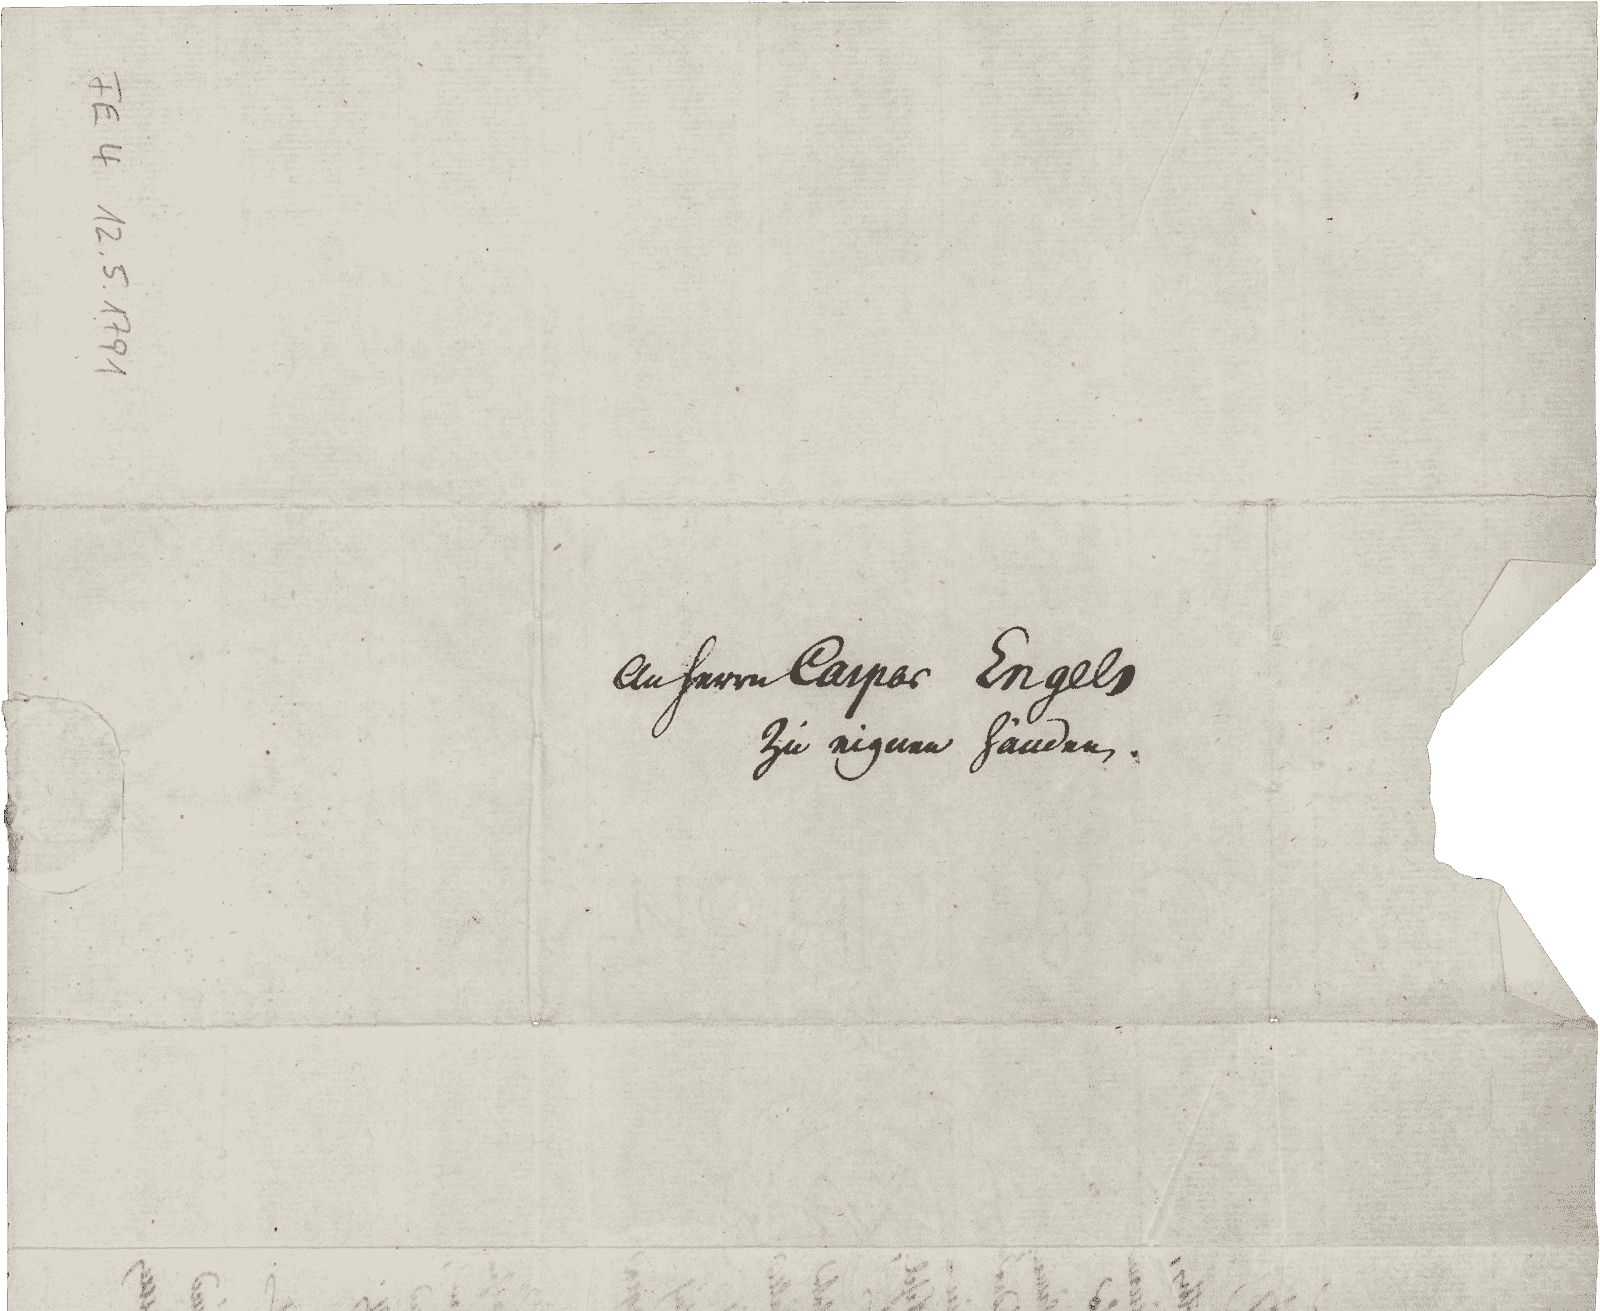 FE 4 12.5.1791
An Herrn Caspar Engels
Zu eignen Händen.